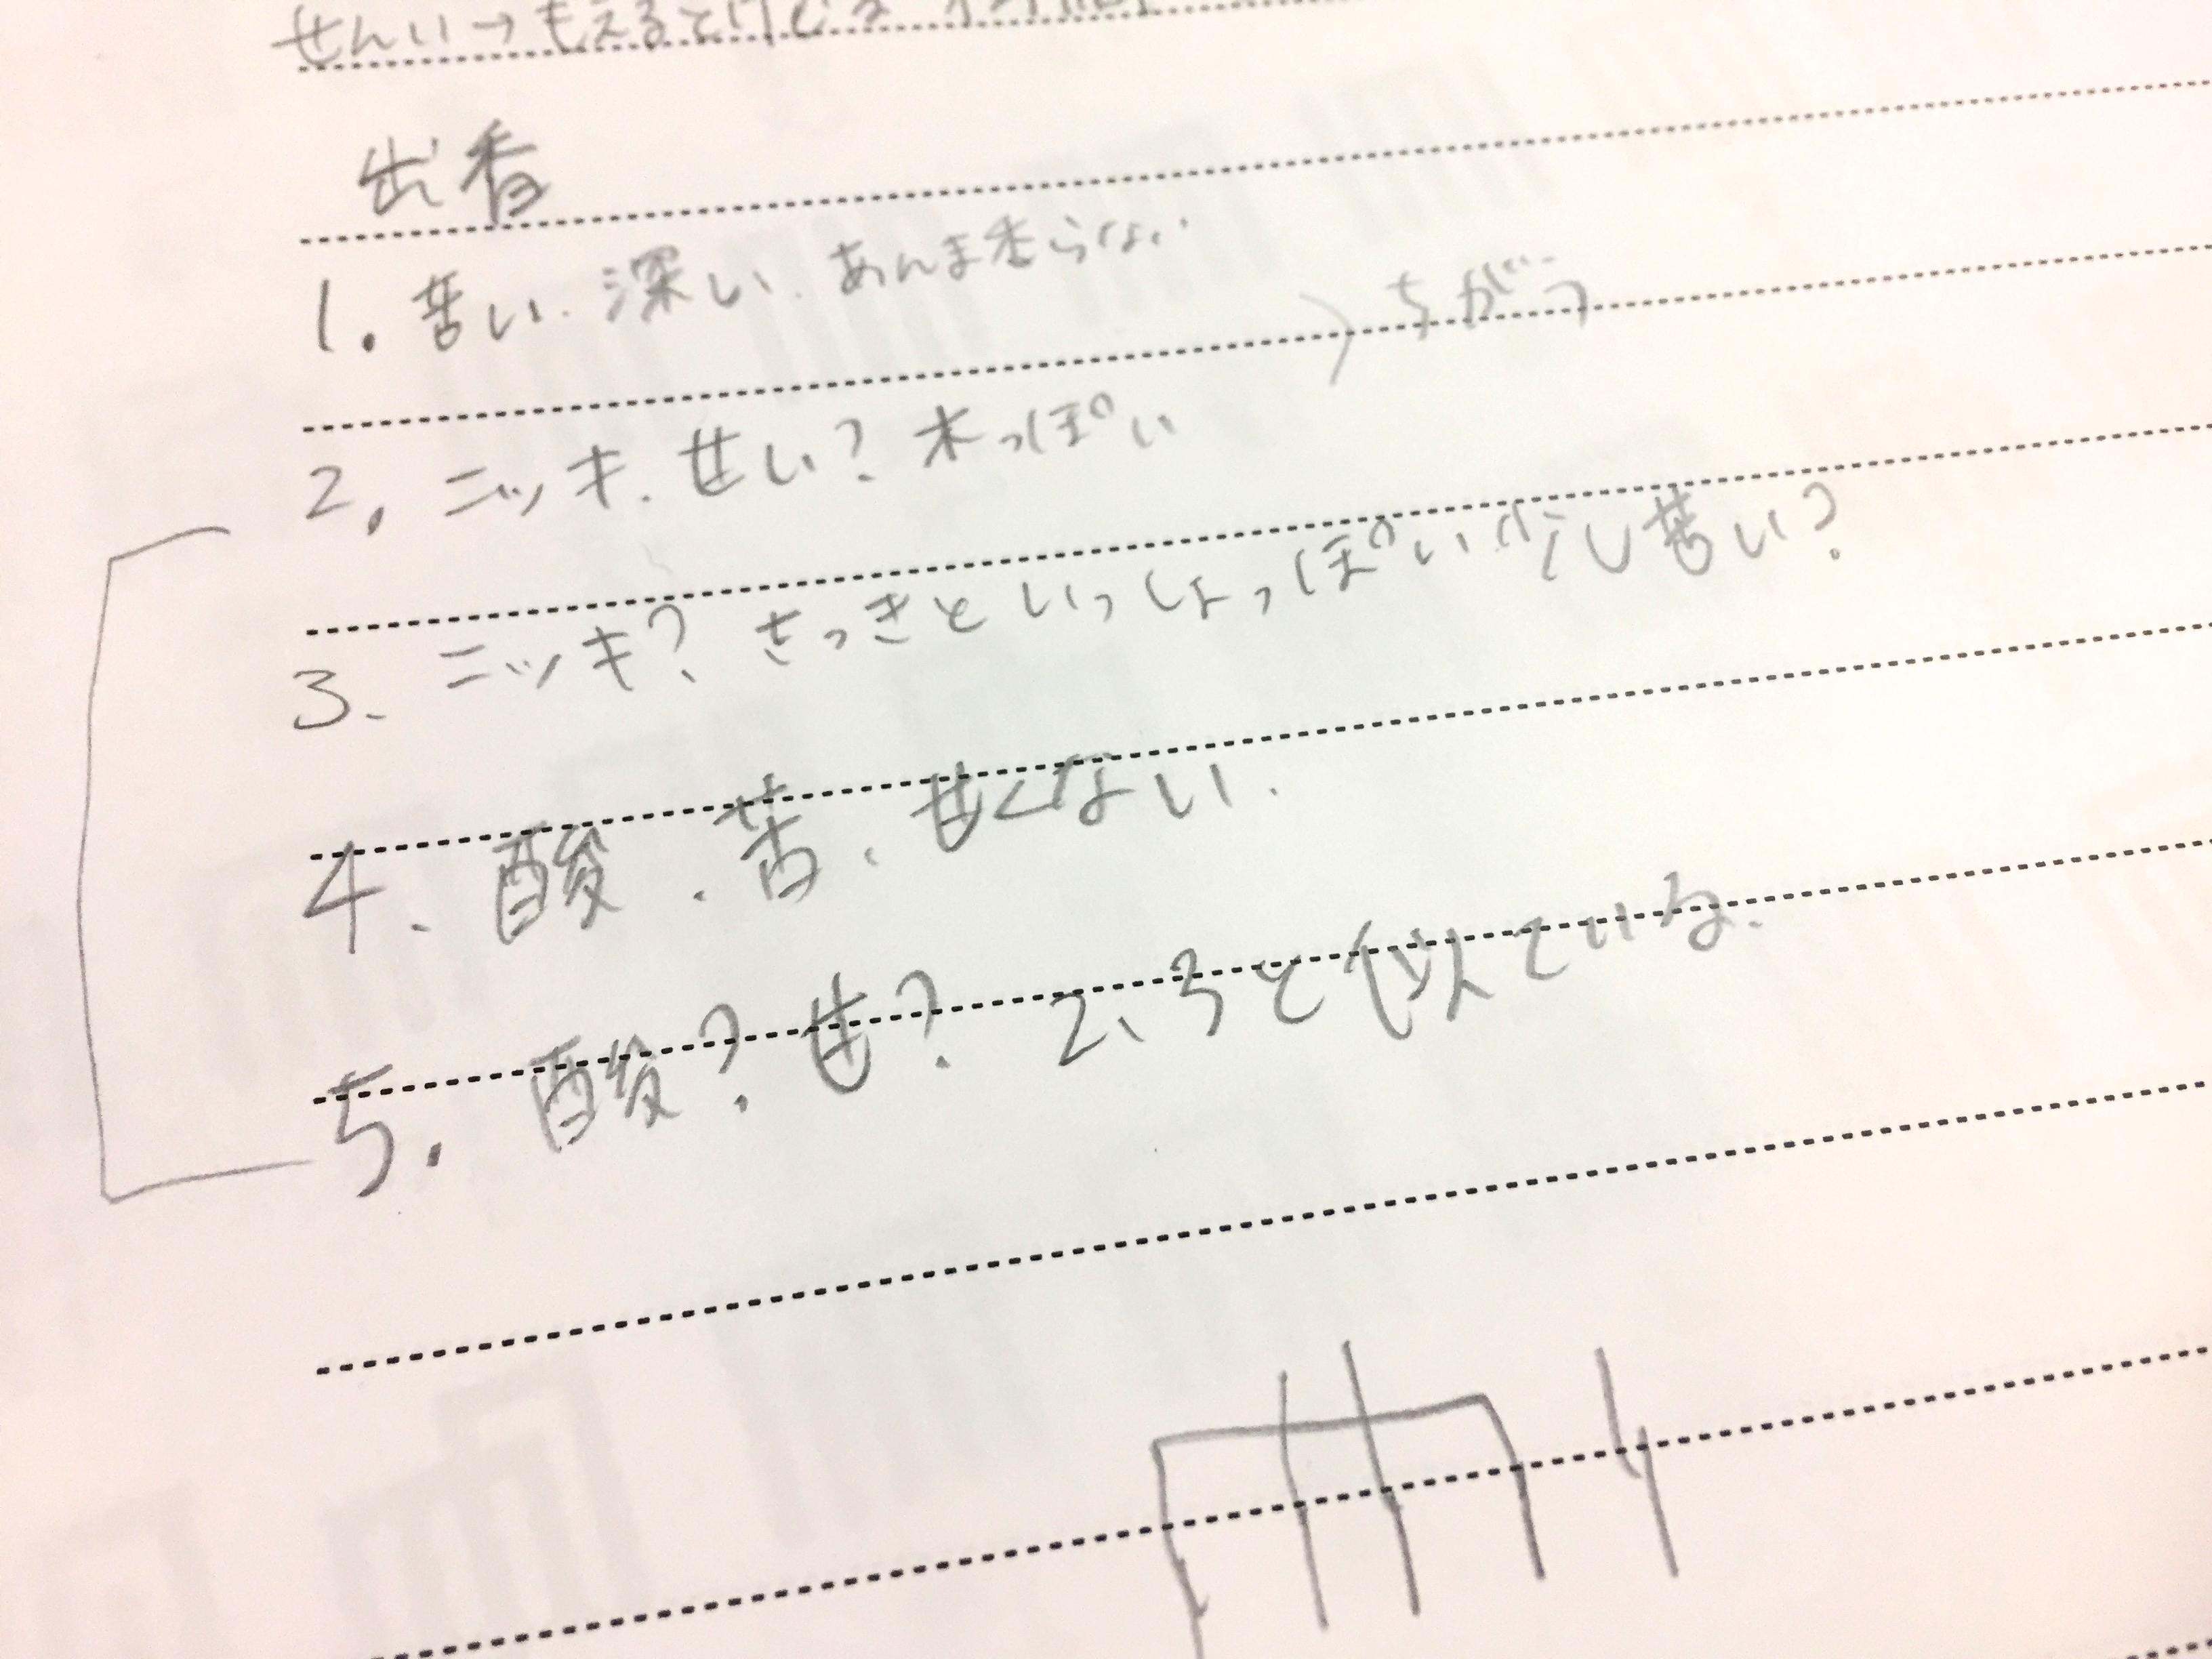 せんい→もえると
出香
1. 苦い. 深い. あんま香らない
ちがう
2. ニッキ. 甘い? 木っぽい
3. ニッキ? さっきといっしょっぽい 少し苦い?
4. 酸. 苦. 甘くない.
5. 酸? 甘? 2、3と似ている.